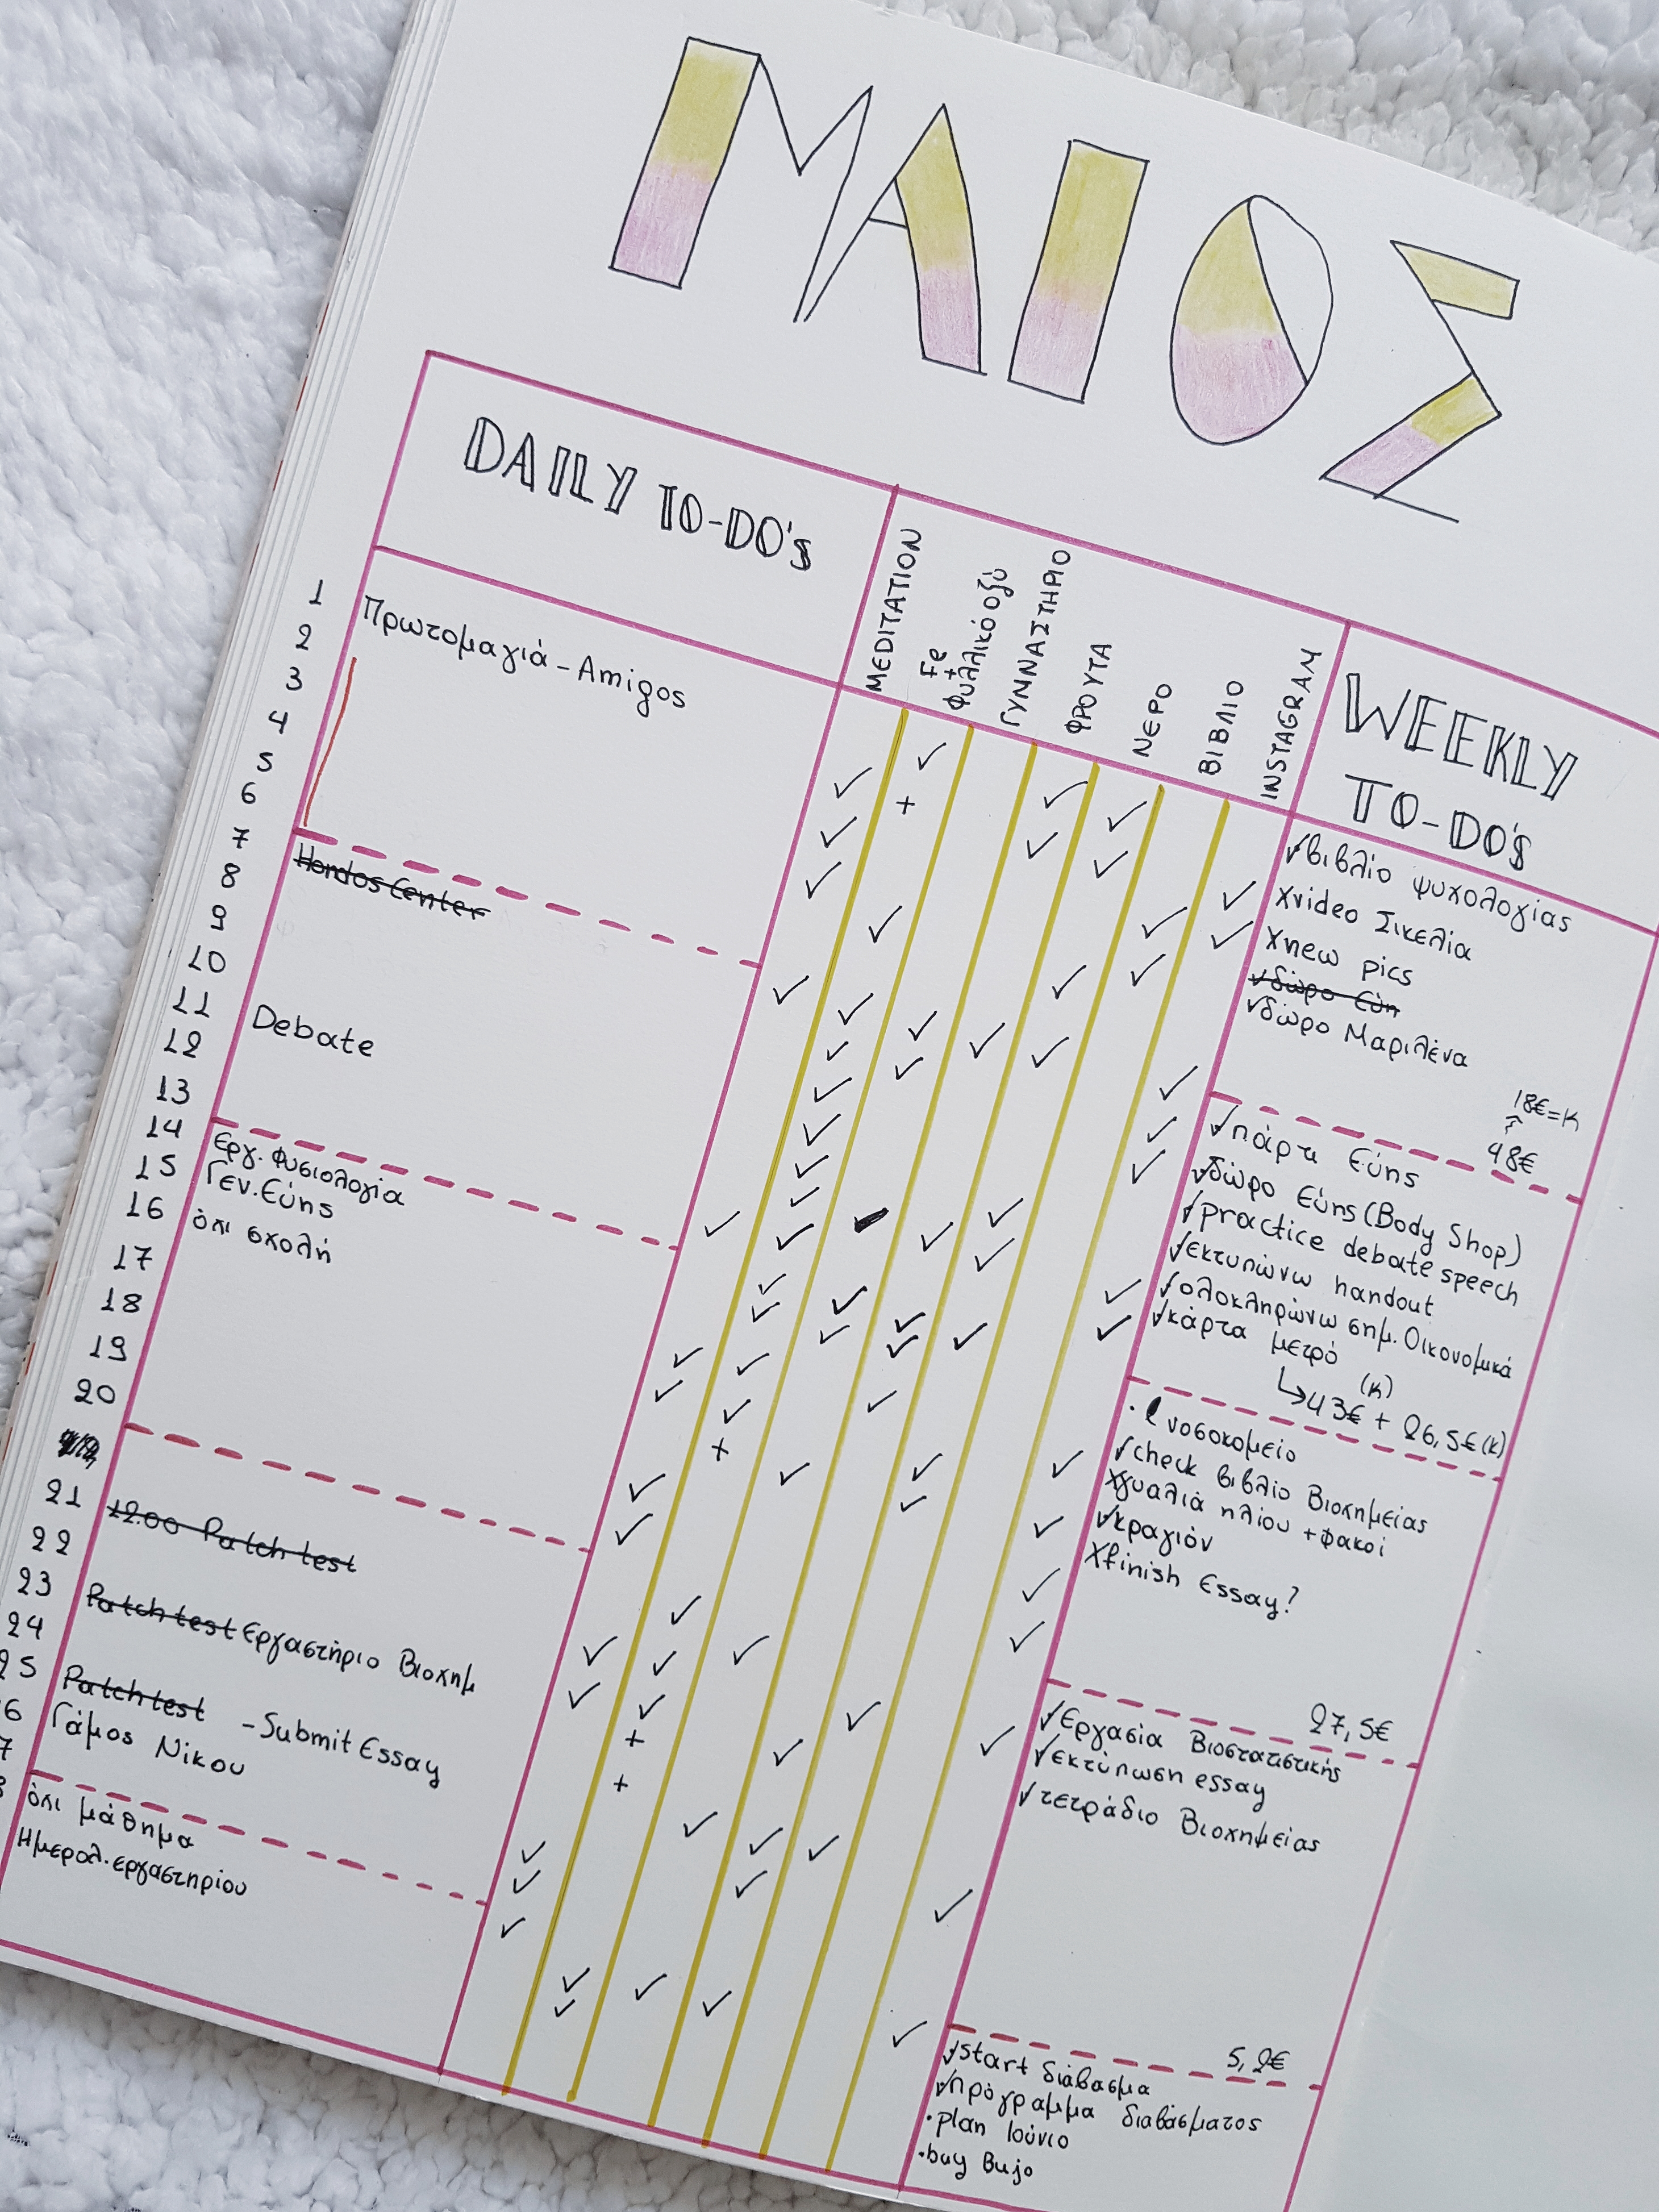 ΜΑΙΟΣ
DAILY TO-DO's
MEDITATION
Fe
+
Φυλλικό οξύ
ΓΥΝΝΑΣΤΗΡΙΟ
ΦΡΟΥΤΑ
ΝΕΡΟ
ΒΙΒΛΙΟ
INSTAGRAM
WEEKLY
TO-DO'S
1
2
3
4
5
6
7
8
9
10
11
12
13
14
15
16
17
18
19
20
21
22
23
24
25
6
7
Πρωτομαγιά - Amigos
Hondos Center
Debate
Εργ. Φυσιολογία
Γεν. Εύης
όχι σχολή
12:00 Patch test
Patch test Εργαστήριο Βιοχημ
Patch test - Submit Essay
Γάμος Νίκου
όχι μάθημα
Ημερολ. εργαστηρίου
✓βιβλίο ψυχολογίας
Χvideo Σικελία
Χnew pics
✓δώρο Εύη
✓δώρο Μαριλένα
18€=Κ
48€
✓πάρτι Εύης
✓δώρο Εύης (Body Shop)
✓practice debate speech
✓εκτυπώνω handout
✓ολοκληρώνω σημ. Οικονομικά
✓κάρτα μετρό
(κ)
↳43€ + 26,5€ (κ)
· νοσοκομείο
✓check βιβλίο Βιοχημείας
Χγυαλιά ηλίου + φακοί
✓κραγιόν
Χfinish Essay?
27,5€
✓Εργασία Βιοστατιστικής
✓εκτύπωση essay
✓τετράδιο Βιοχημείας
5,2€
✓start διάβασμα
✓πρόγραμμα διαβάσματος
·plan Ιούνιο
·buy Bujo